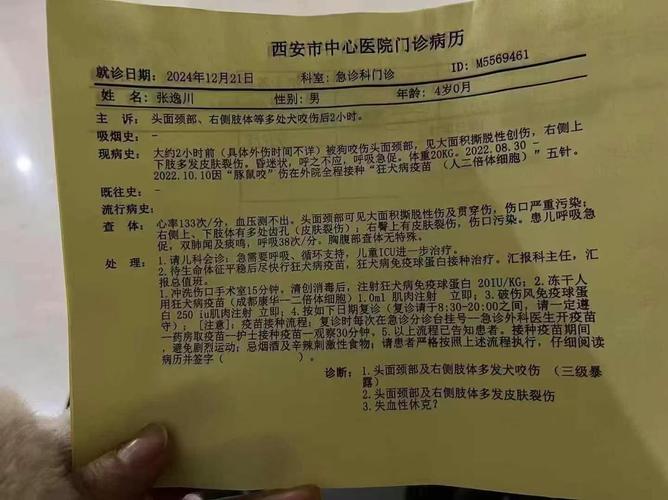 西安市中心医院门诊病历
就诊日期: 2024年12月21日 科室: 急诊科门诊 ID: M5569461
姓 名: 张逸川 性别: 男 年龄: 4岁0月
主 诉: 头面颈部、右侧肢体等多处犬咬伤后2小时。
吸烟史: -
现病史: 大约2小时前(具体外伤时间不详)被狗咬伤头面颈部,见大面积撕脱性创伤,右侧上
下肢多发皮肤裂伤。昏迷状,呼之不应,呼吸急促。体重20KG。2022.08.30 -
2022.10.10因“豚鼠咬”伤在外院全程接种“狂犬病疫苗 (人二倍体细胞)”五针。
既往史: -
流行病史:
查 体: 心率133次/分,血压测不出。头面颈部可见大面积撕脱性伤及贯穿伤,伤口严重污染;
右侧上、下肢体有多处齿孔(皮肤裂伤);右臀上有皮肤裂伤,伤口污染。患儿呼吸急
促,双肺闻及痰鸣,呼吸38次/分。胸腹部查体无特殊。
处 理: 1.请儿科会诊:急需要呼吸、循环支持,儿童ICU进一步治疗。汇报科主任,汇
报总值班。
2.待生命体征平稳后尽快行狂犬病疫苗,狂犬病免疫球蛋白接种治疗。
1.冲洗伤口手术室15分钟,清创消毒后,注射狂犬病免疫球蛋白 20IU/KG;2.冻干人
用狂犬病疫苗(成都康华—二倍体细胞)1.0ml 肌肉注射 立即;3.破伤风免疫球蛋
白 250 iu肌肉注射 立即;4.按如下日期复诊(复诊请于8:30-20:00之间,请一定遵
守);[注意]:疫苗接种流程:复诊时每次在急诊分诊台挂号—急诊外科医生开疫苗
—药房取疫苗—护士接种疫苗—观察30分钟。5.以上流程已告知患者。接种疫苗期间
,避免剧烈运动;忌烟酒及辛辣刺激性食物;请患者严格按照上述流程执行,仔细阅读
病历并签字( )
诊断: 1.头面颈部及右侧肢体多发犬咬伤 (三级暴
露)
2.头面颈部及右侧肢体多发皮肤裂伤
3.失血性休克?